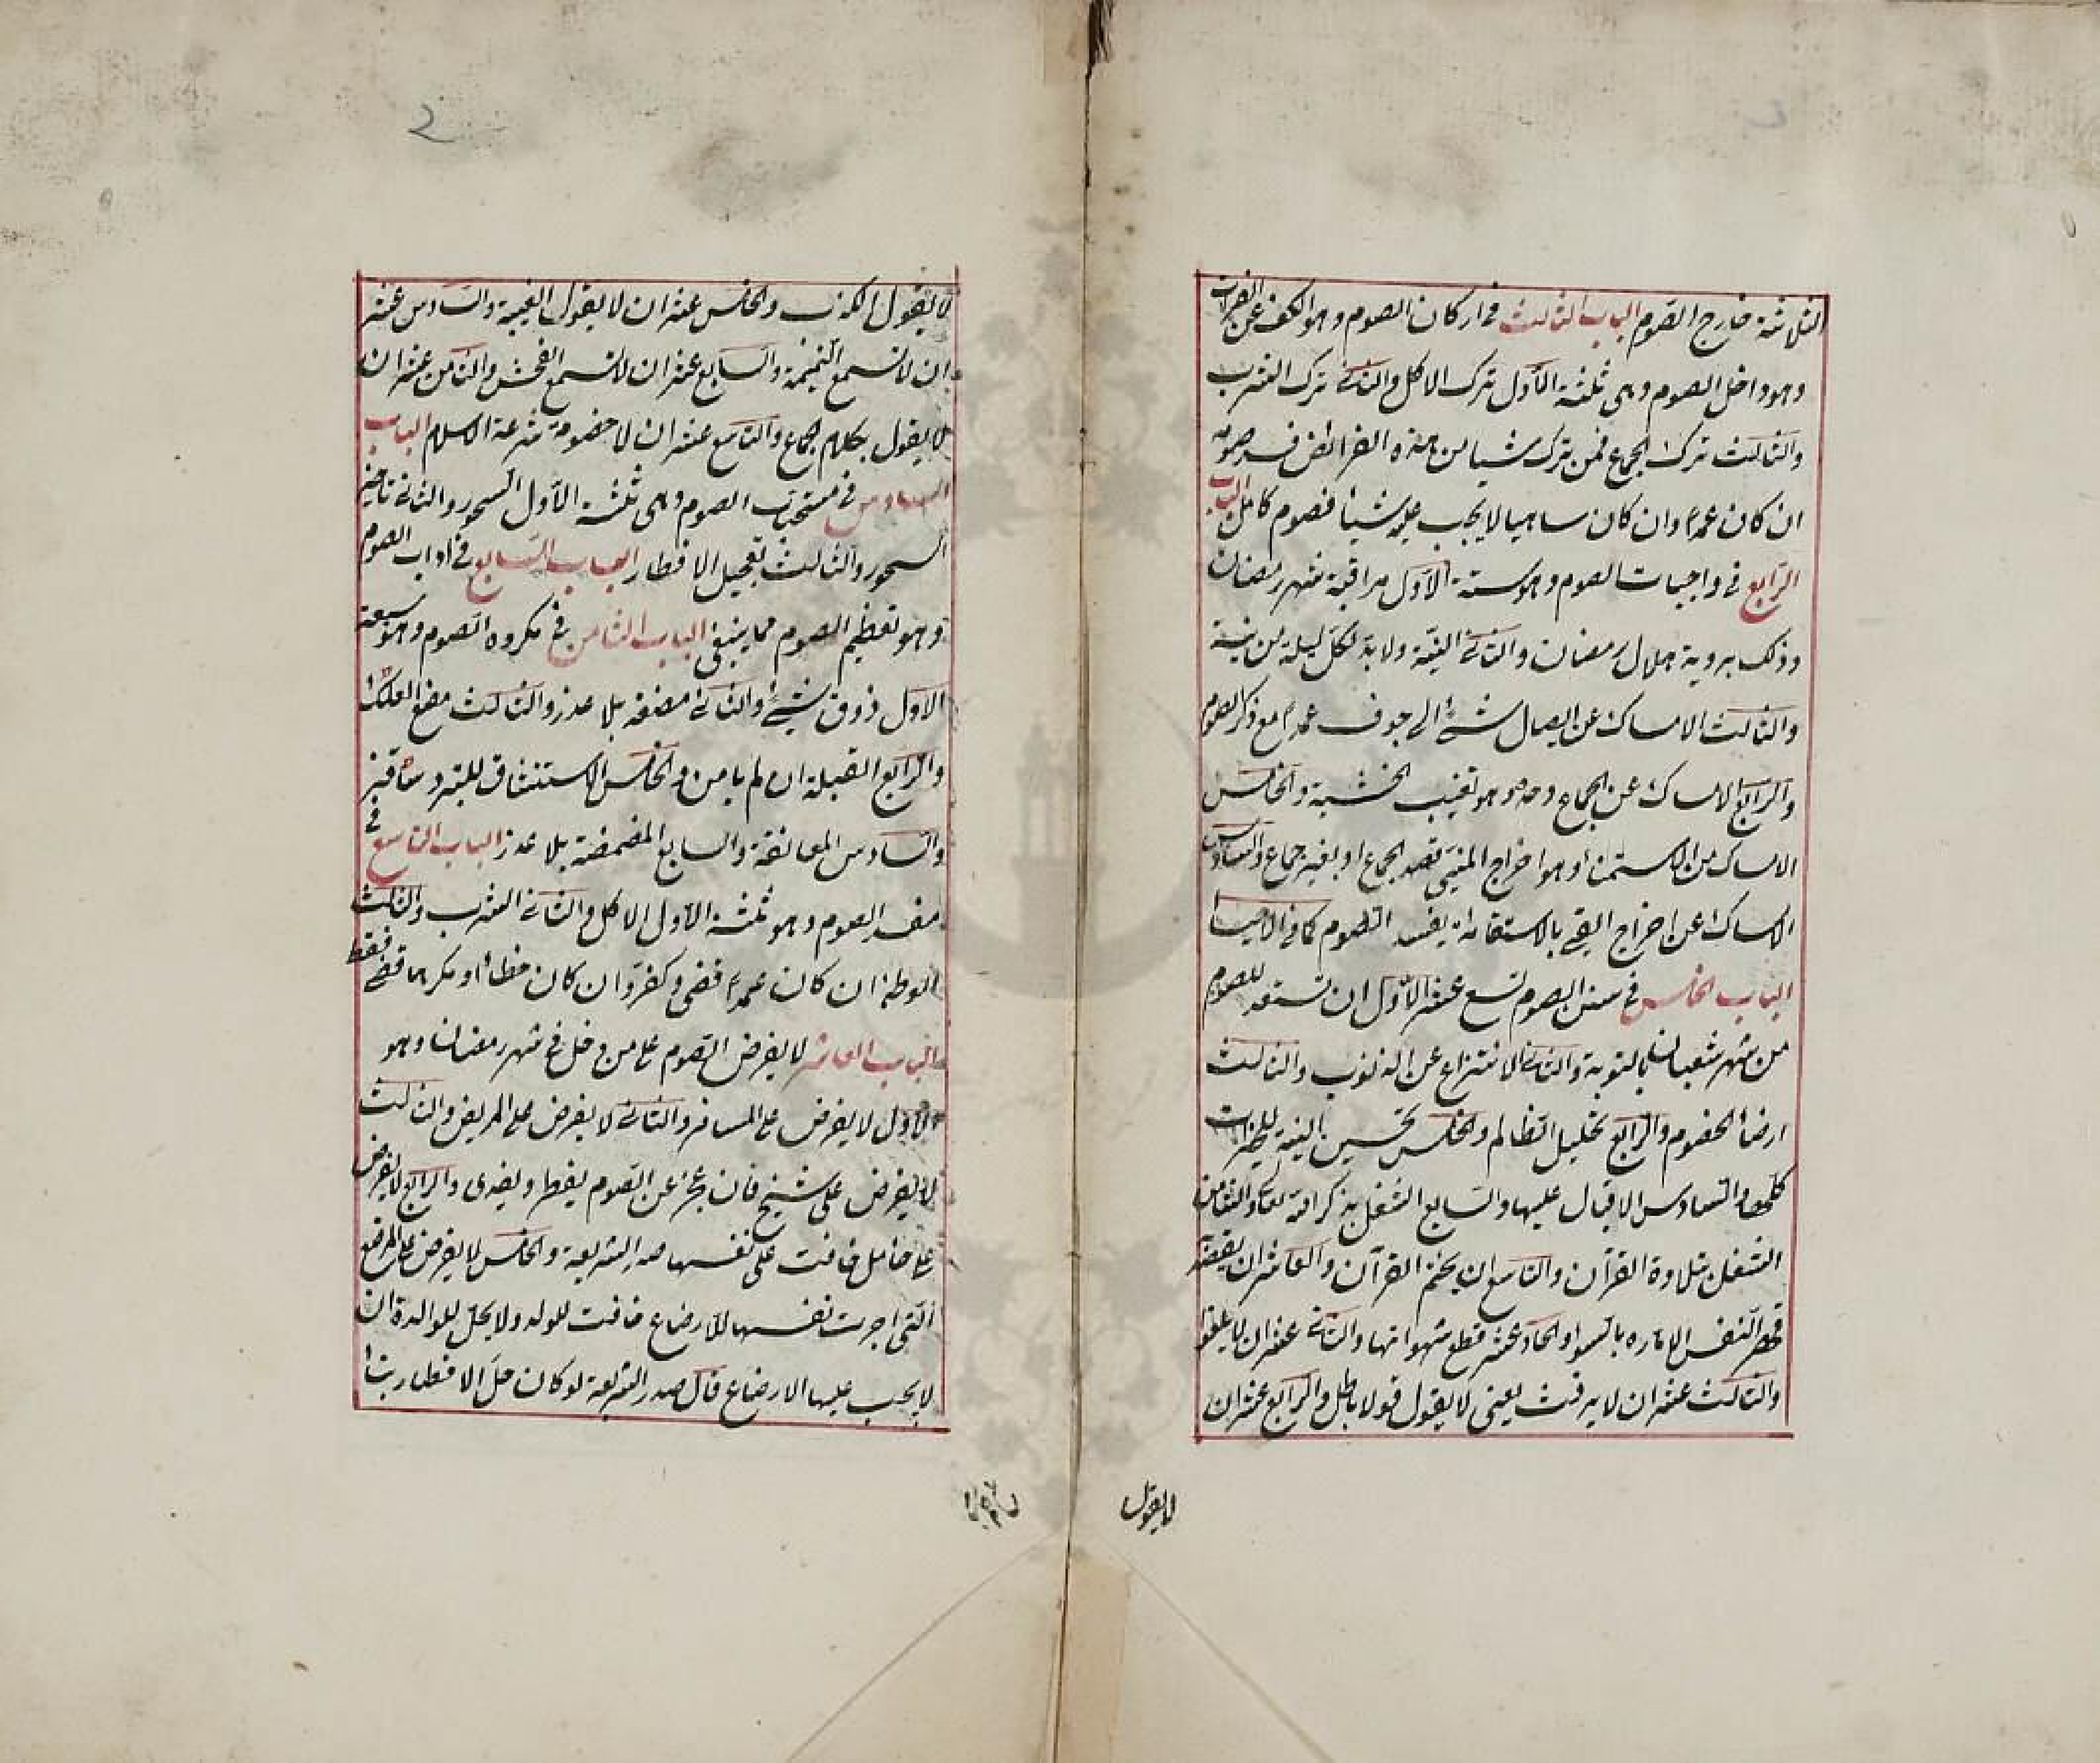 الثلاثة خارج الصّوم الباب الثالث في اركان الصوم وهو الكف عن
وهو داخل الصوم وهي ثلثة الأوّل ترك الاكل والثانى ترك الشرب
والثالث ترك الجماع فمن ترك شيا من هذه الفرائض فسد صومه
ان كان عمدا وان كان ساهيا لا يجب عليه شيأ فصوم كامل الباب
الرّابع في واجبات الصوم وهو ستة الأوّل مراقبة شهر رمضان
وذلك بروية هلال رمضان والثانى النيّة ولابدّ لكلّ ليلة من نية
والثالث الامساك عن ايصال شئ الى جوف عمدا مع ذكر الصوم
والرّابع الامساك عن الجماع وحده وهو تغيب الحشبة والخامس
الامساك من الاستمناء وهو اخراج المنيّ قصد الجماع او بغير جماع والسادس
الامساك عن اخراج القيئ بالاستقاء يفسد الصوم كما في الاحيا
الباب الخامس في سنن الصوم تسع عشر الأوّل ان تستعد للصوم
من شهر شعبان بالتوبة والثانى الانتزاع عن الذنوب والثالث
ارضأ الخصوم والرّابع تحليل المظالم والخامس تحسين النية للخيرات
كلّها والسّادس الاقبال عليها والسّابع الشغل بذكر الله تعالى والثامن
الشغل بتلاوة القرآن والتاسع ان يختم القرآن والعاشر ان
قهر النّفس الاماره بالسوء والحادى عشر قطع شهواتها والثانى عشر ان لا
والثالث عشر ان لا يرفث يعنى لا يقول قولا باطل والرّابع عشر ان
لا يقول
لا يقول الكذب والخامس عشر ان لا يقول الغيبة والسّادس عشر
ان لا تسمع النّميمة والسّابع عشر ان لا تسمع الفحش والثّامن عشر ان
لا يقول بكلام جماع والتّاسع عشر ان لا خصومة شرعة الاسلام الباب
السادس في مستحبّات الصوم وهي ثلثة الأوّل السّحور والثانى تاخير
السحور والثالث تعجيل الافطار الباب السّابع في اداب الصوم
وهو تعظيم الصوم مما ينبغى الباب الثامن في مكروه الصّوم وهو سبعة
الاوّل ذوق شيئ والثانى مضغه بلا عذر والثالث مضغ العلك
والرّابع القبلة ان لم يامن والخامس الاستنشاق للتبرد
والسّادس المعانقة والسابع المضمضة بلا عذر الباب التاسع في
مفسد الصوم وهو ثلثة الأوّل الاكل والثانى الشرب والثالث
الوطئ ان كان عمدا قضى وكفرّ وان كان خطأ او مكرها قضى فقط
الباب العاشر لا يفرض الصّوم على من دخل في شهر رمضان وهو
الأوّل لا يفرض على المسافر والثانى لا يفرض على المريض والثالث
لا يفرض على شيخ فان عجز عن الصّوم يفطر ويفدى والرّابع لا يفرض
على حامل خافت على نفسها صدر الشريعة والخامس لا يفرض على المرضع
الّتي اجرت نفسها للارضاع خافت للولد ولا يحلّ للوالدة ان
لا يجب عليها الارضاع قال صدر الشريعة لو كان حلّ الافطار بنا